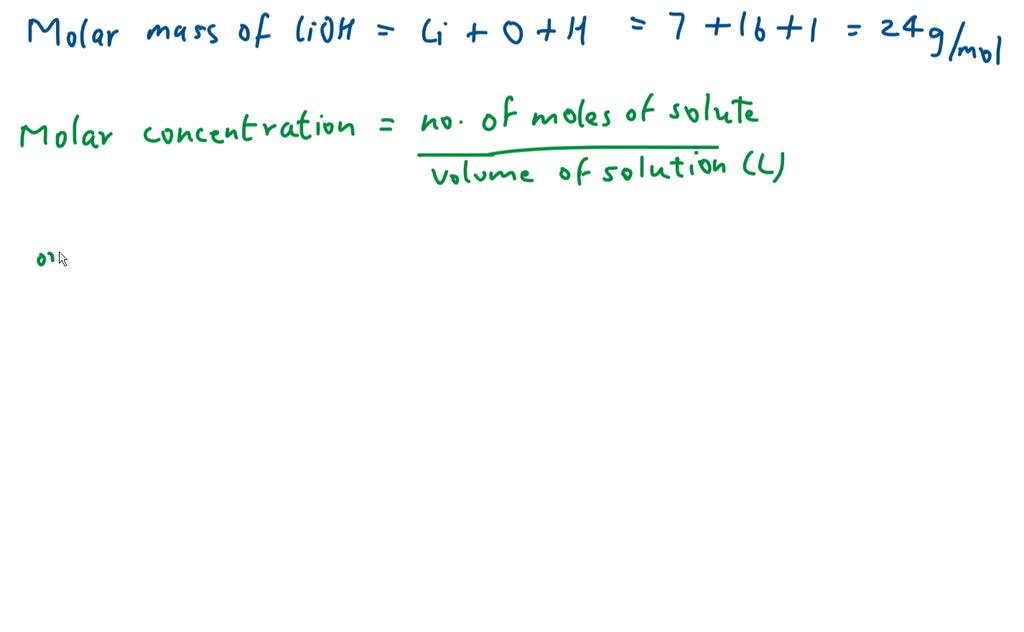 Molar mass of LiOH = Li + O + H = 7 + 16 + 1 = 24g/mol
Molar concentration = no. of moles of solute
volume of solution (L)